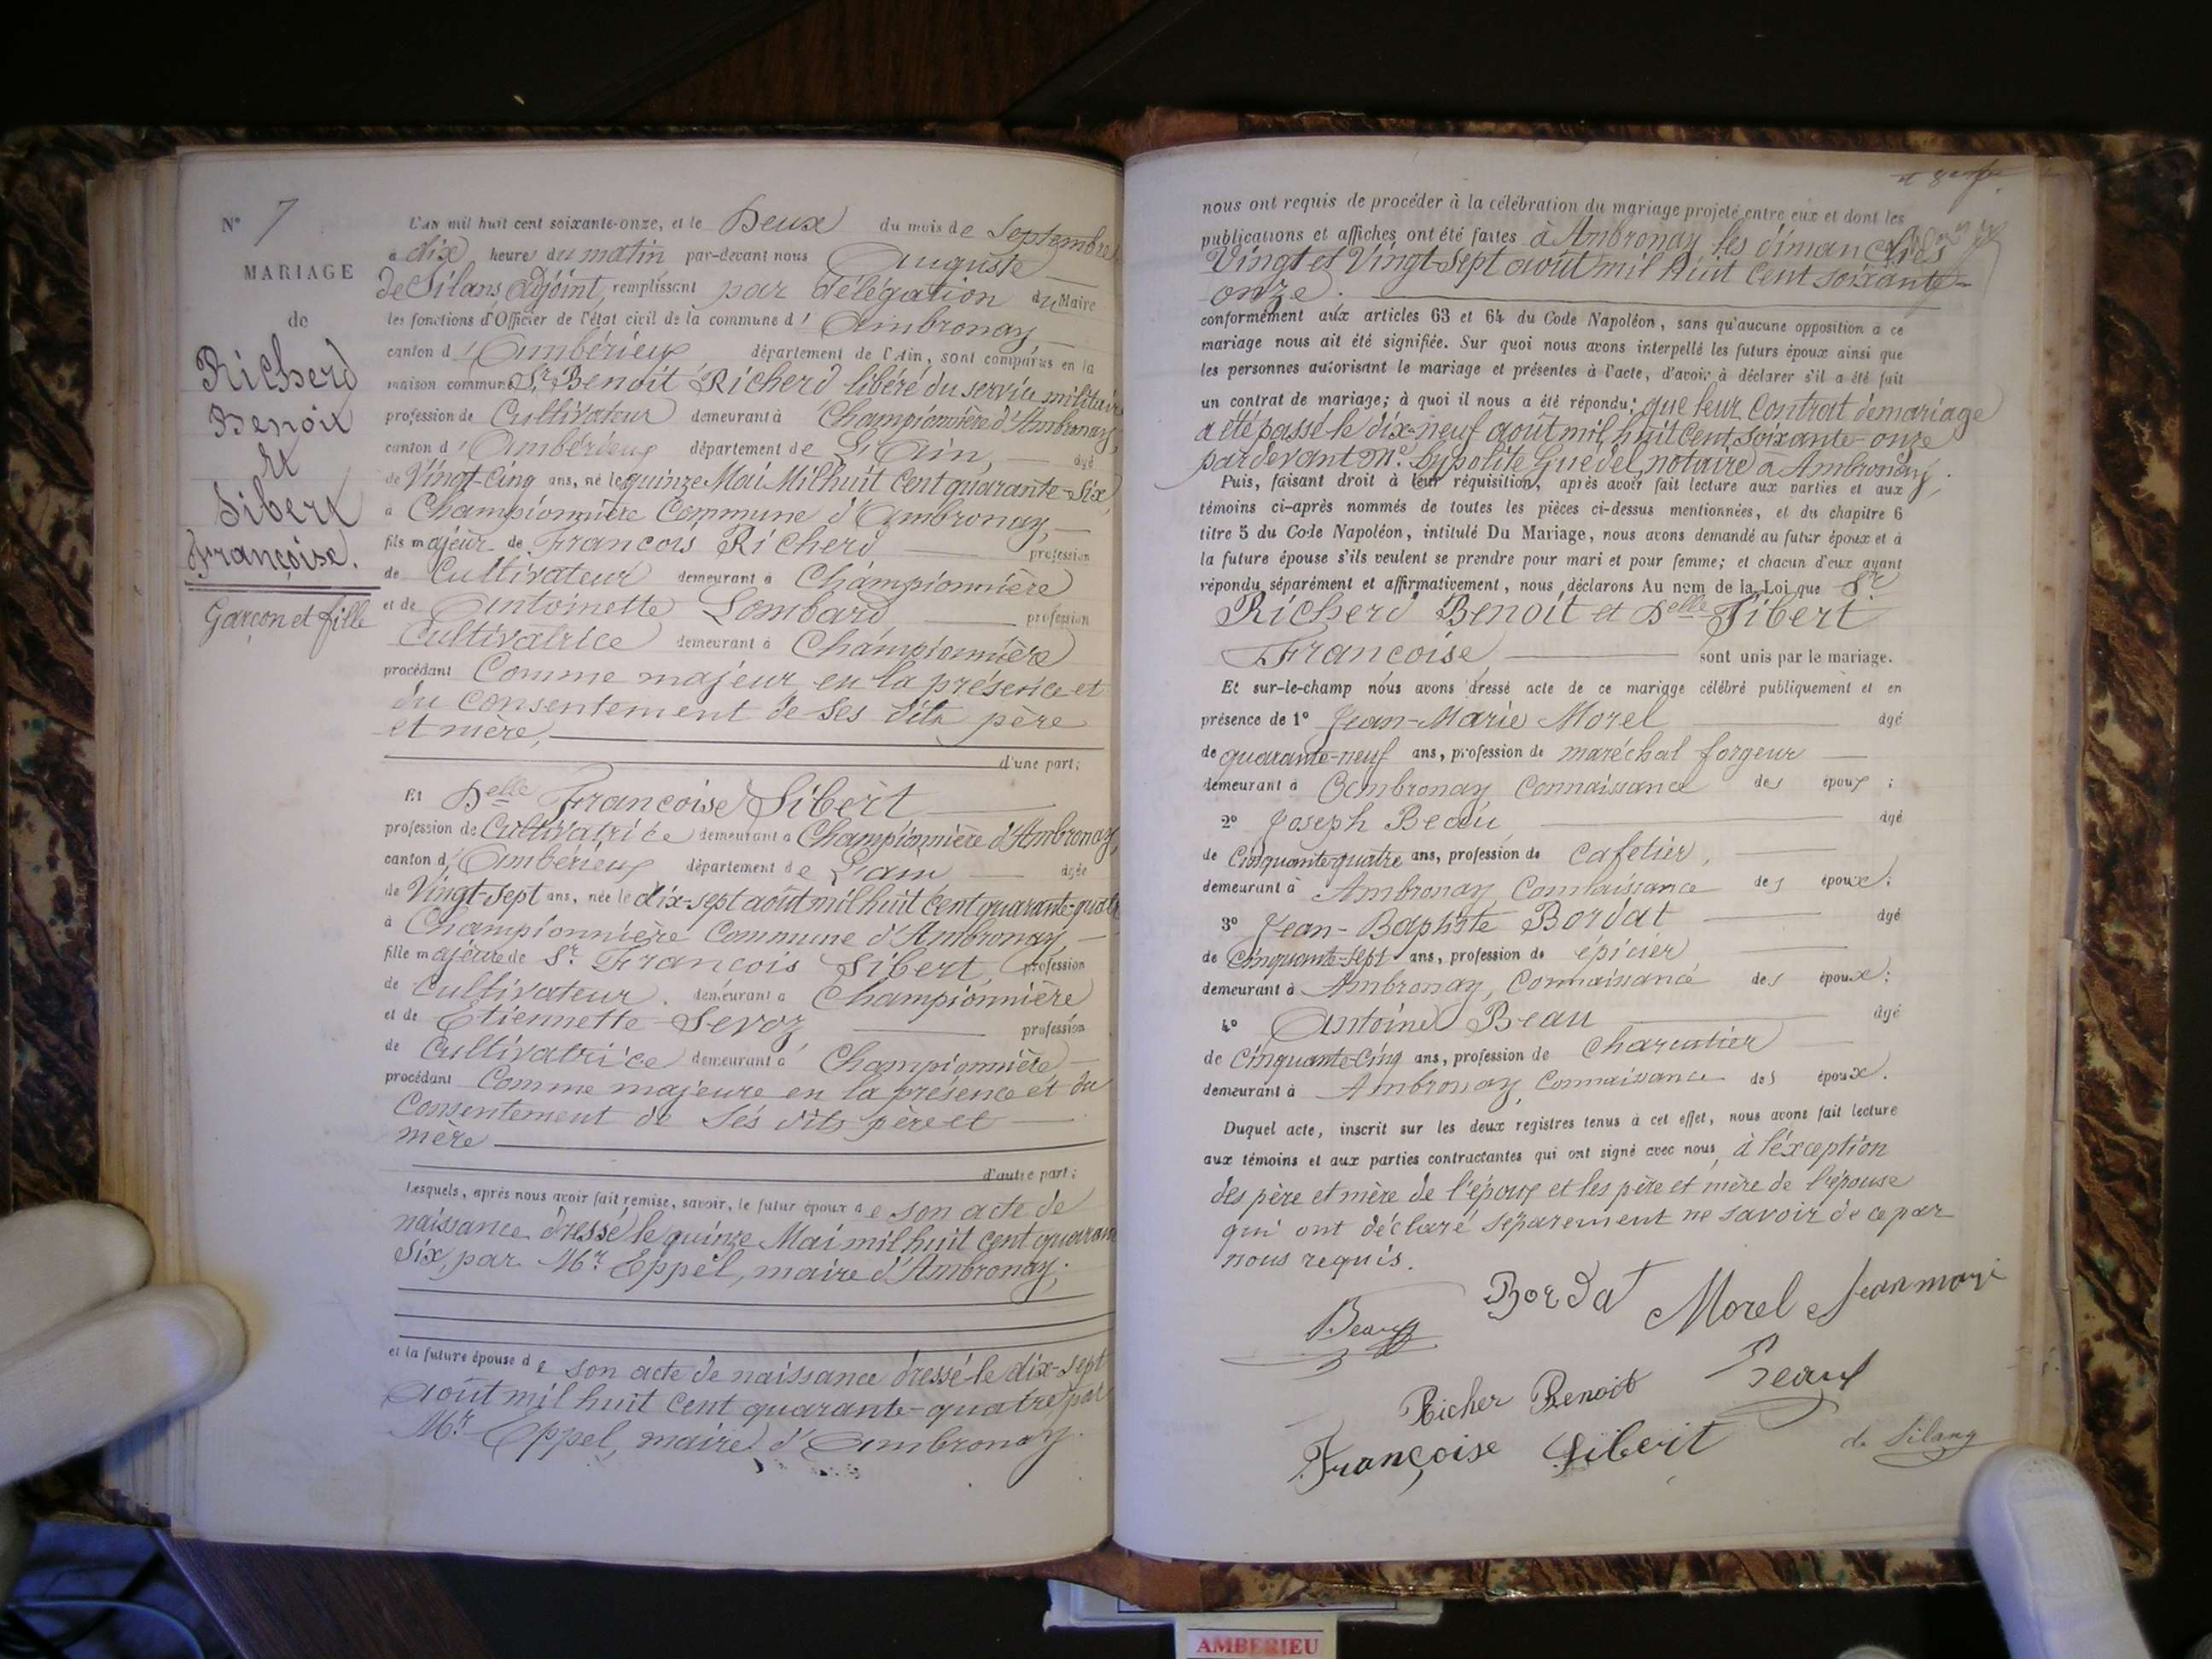 N° 7
MARIAGE
de
Richerd
Benoit
et
Sibert
Françoise.
Garçon et fille
L'an mil huit cent soixante-onze, et le Deux du mois de Septembre
à dix heure du matin par-devant nous Auguste
de Silans, adjoint, remplissant par délégation du Maire
les fonctions d'Officier de l'état civil de la commune d'Ambronay
canton d'Ambérieux département de l'Ain, sont comparus en la
maison commune Sr Benoit Richerd libéré du service militaire
profession de Cultivateur demeurant à Championnière d'Ambronay,
canton d'Ambérieux département de L'Ain, âgé
de Vingt-Cinq ans, né le quinze Mai Mil huit Cent quarante-Six,
à Championnière Commune d'Ambronay,
fils majeur de François Richerd profession
de Cultivateur demeurant à Championnière
et de Antoinette Lombard profession
Cultivatrice demeurant à Championnière
procédant Comme majeur en la présence et
du consentement de ses dits père
et mère,
d'une part;
Et Delle Françoise Sibert
profession de Cultivatrice demeurant à Championnière d'Ambronay,
canton d'Ambérieux département de L'ain âgée
de Vingt-Sept ans, née le dix-sept août mil huit Cent quarante-quatre
à Championnière Commune d'Ambronay,
fille majeure de Sr François Sibert, profession
de Cultivateur. demeurant à Championnière
et de Etiennette Sevoz profession
de Cultivatrice demeurant à Championnière,
procédant Comme majeure en la présence et du
Consentement de Sés dits père et
mère
d'autre part;
Lesquels, après nous avoir fait remise, savoir, le futur époux de son acte de
naissance dressé le quinze Mai mil huit Cent quaran
six, par Mr Eppel, maire d'Ambronay;
et la future épouse de son acte de naissance dressé le dix-sept
août mil huit Cent quarante-quatre par
Mr Eppel, maire d'Ambronay.
nous ont requis de procéder à la célébration du mariage projeté entre eux et dont les
publications et affiches ont été faites à Ambronay les dimanches
Vingt et Vingt-Sept août mil huit Cent soixante-
onze.
conformément aux articles 63 et 64 du Code Napoléon, sans qu'aucune opposition à ce
mariage nous ait été signifiée. Sur quoi nous avons interpellé les futurs époux ainsi que
les personnes autorisant le mariage et présentes à l'acte, d'avoir à déclarer s'il a été fait
un contrat de mariage; à quoi il nous a été répondu: que leur Contrat de mariage
a été passé le dix-neuf août mil huit Cent soixante-onze
par devant Me. Hypolite Guédel, notaire à Ambronay;
Puis, faisant droit à leur réquisition, après avoir fait lecture aux parties et aux
témoins ci-après nommés de toutes les pièces ci-dessus mentionnées, et du chapitre 6
titre 5 du Code Napoléon, intitulé Du Mariage, nous avons demandé au futur époux et à
la future épouse s'ils veulent se prendre pour mari et pour femme; et chacun d'eux ayant
répondu séparément et affirmativement, nous déclarons Au nom de la Loi que Sr
Richerd Benoit et Delle Sibert
Françoise sont unis par le mariage.
Et sur-le-champ nous avons dressé acte de ce mariage célébré publiquement et en
présence de 1° Jean-Marie Morel âgé
de quarante-neuf ans, profession de maréchal forgeur
demeurant à Ambronay Connaissance des époux;
2° Joseph Beau âgé
de Cinquante-quatre ans, profession de Cafetier,
demeurant à Ambronay, Connaissance des époux;
3° Jean-Baptiste Bordat âgé
de Cinquante-Sept ans, profession de épicier
demeurant à Ambronay, Connaissance des époux;
4° Antoine Beau âgé
de Cinquante-Cinq ans, profession de Charcutier
demeurant à Ambronay, Connaissance des époux.
Duquel acte, inscrit sur les deux registres tenus à cet effet, nous avons fait lecture
aux témoins et aux parties contractantes qui ont signé avec nous, à l'éxception
des père et mère de l'époux et les père et mère de l'épouse
qui ont déclaré séparement ne savoir de ce par
nous requis.
Bordat Morel Jean mari
Beau
Richer Benoit Beau
Françoise Sibert de Silans
AMBERIEU